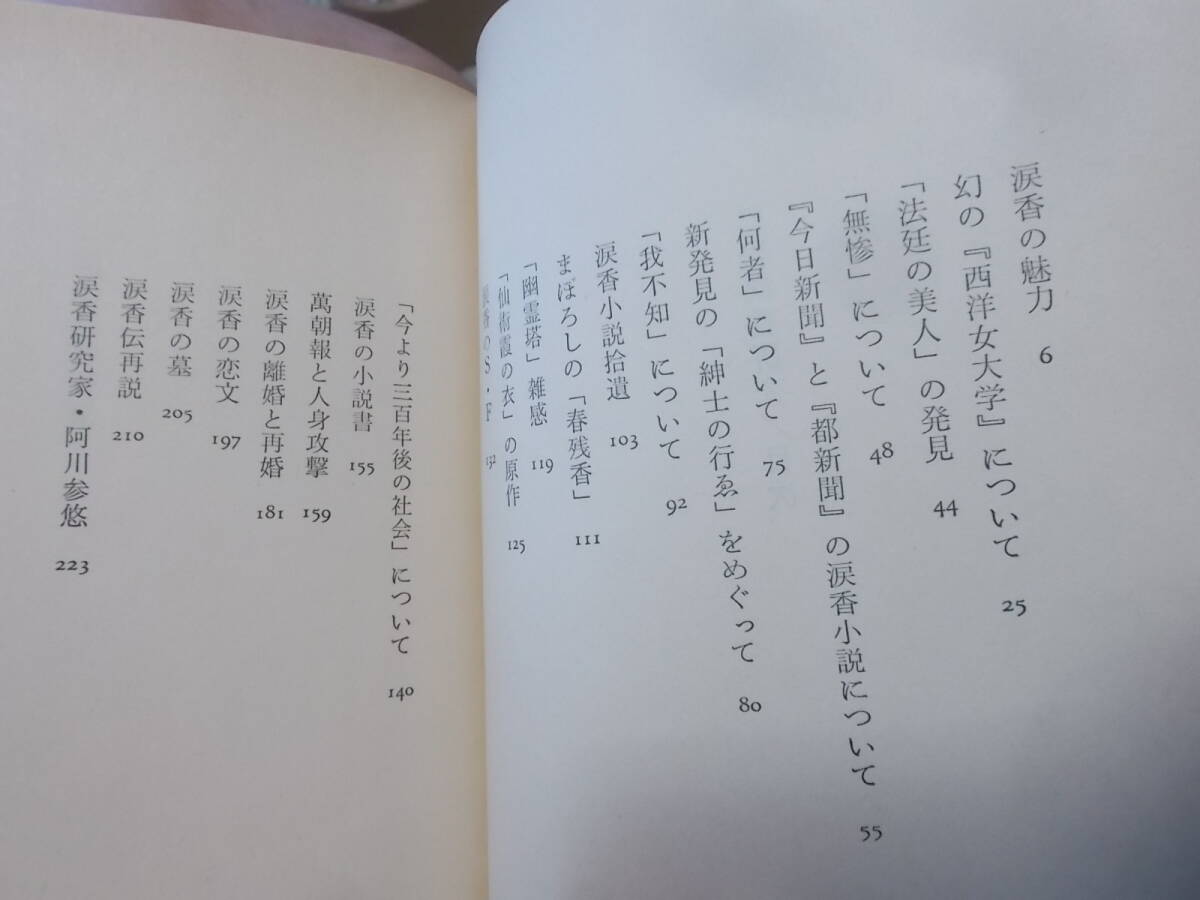 涙香の魅力 6
幻の『西洋女大学』について 25
「法廷の美人」の発見 44
「無惨」について 48
『今日新聞』と『都新聞』の涙香小説について 55
「何者」について 75
新発見の「紳士の行ゑ」をめぐって 80
「我不知」について 92
涙香小説拾遺 103
まぼろしの「春残香」 111
「幽霊塔」雑感 119
「仙術霞の衣」の原作 125
涙香のS・F 132
「今より三百年後の社会」について 140
涙香の小説書 155
萬朝報と人身攻撃 159
涙香の離婚と再婚 181
涙香の恋文 197
涙香の墓 205
涙香伝再説 210
涙香研究家・阿川参悠 223